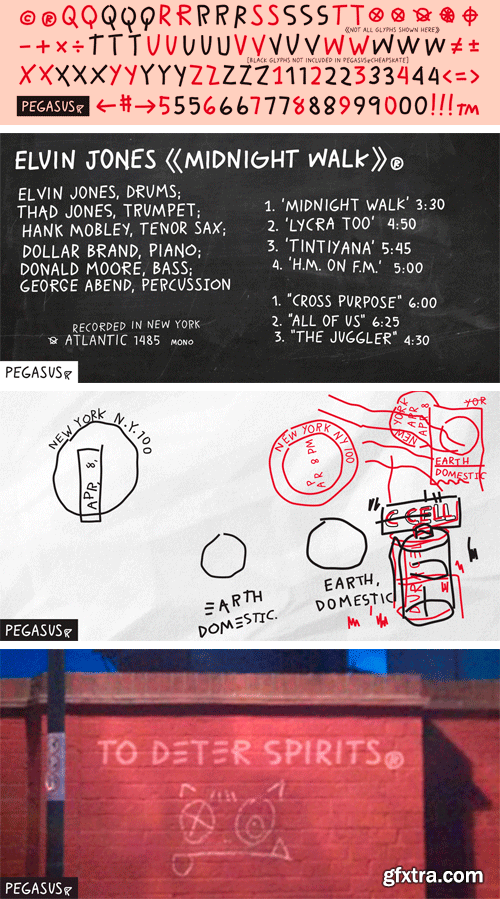 ©®QQQQQRRRRRSSSSSTT
《NOT ALL GLYPHS SHOWN HERE》
-+×÷TTTUUUUUVVVVVWWWWW≠±
[BLACK GLYPHS NOT INCLUDED IN PEGASUS@CHEAPSKATE]
XXXXXYYYYYZZZZZ11112222333344444<=>
PEGASUS
←#→5556667778889990000!!!™
ELVIN JONES 《MIDNIGHT WALK》®
ELVIN JONES, DRUMS;
THAD JONES, TRUMPET;
HANK MOBLEY, TENOR SAX;
DOLLAR BRAND, PIANO;
DONALD MOORE, BASS;
GEORGE ABEND, PERCUSSION
RECORDED IN NEW YORK
ATLANTIC 1485 MONO
1. 'MIDNIGHT WALK' 3:30
2. 'LYCRA TOO' 4:50
3. 'TINTIYANA' 5:45
4. 'H.M. ON F.M.' 5:00
1. "CROSS PURPOSE" 6:00
2. "ALL OF US" 6:25
3. "THE JUGGLER" 4:30
PEGASUS
NEW YORK N.Y. 100
APR, 8,
NEW YORK NY 100
APR 8 PM
NEW YORK
APR 8
YOR
EARTH
DOMESTIC
C CELL
DURACELL
EARTH
DOMESTIC.
EARTH,
DOMESTIC
PEGASUS
TO DETER SPIRITS®
PEGASUS
gfxtra.com